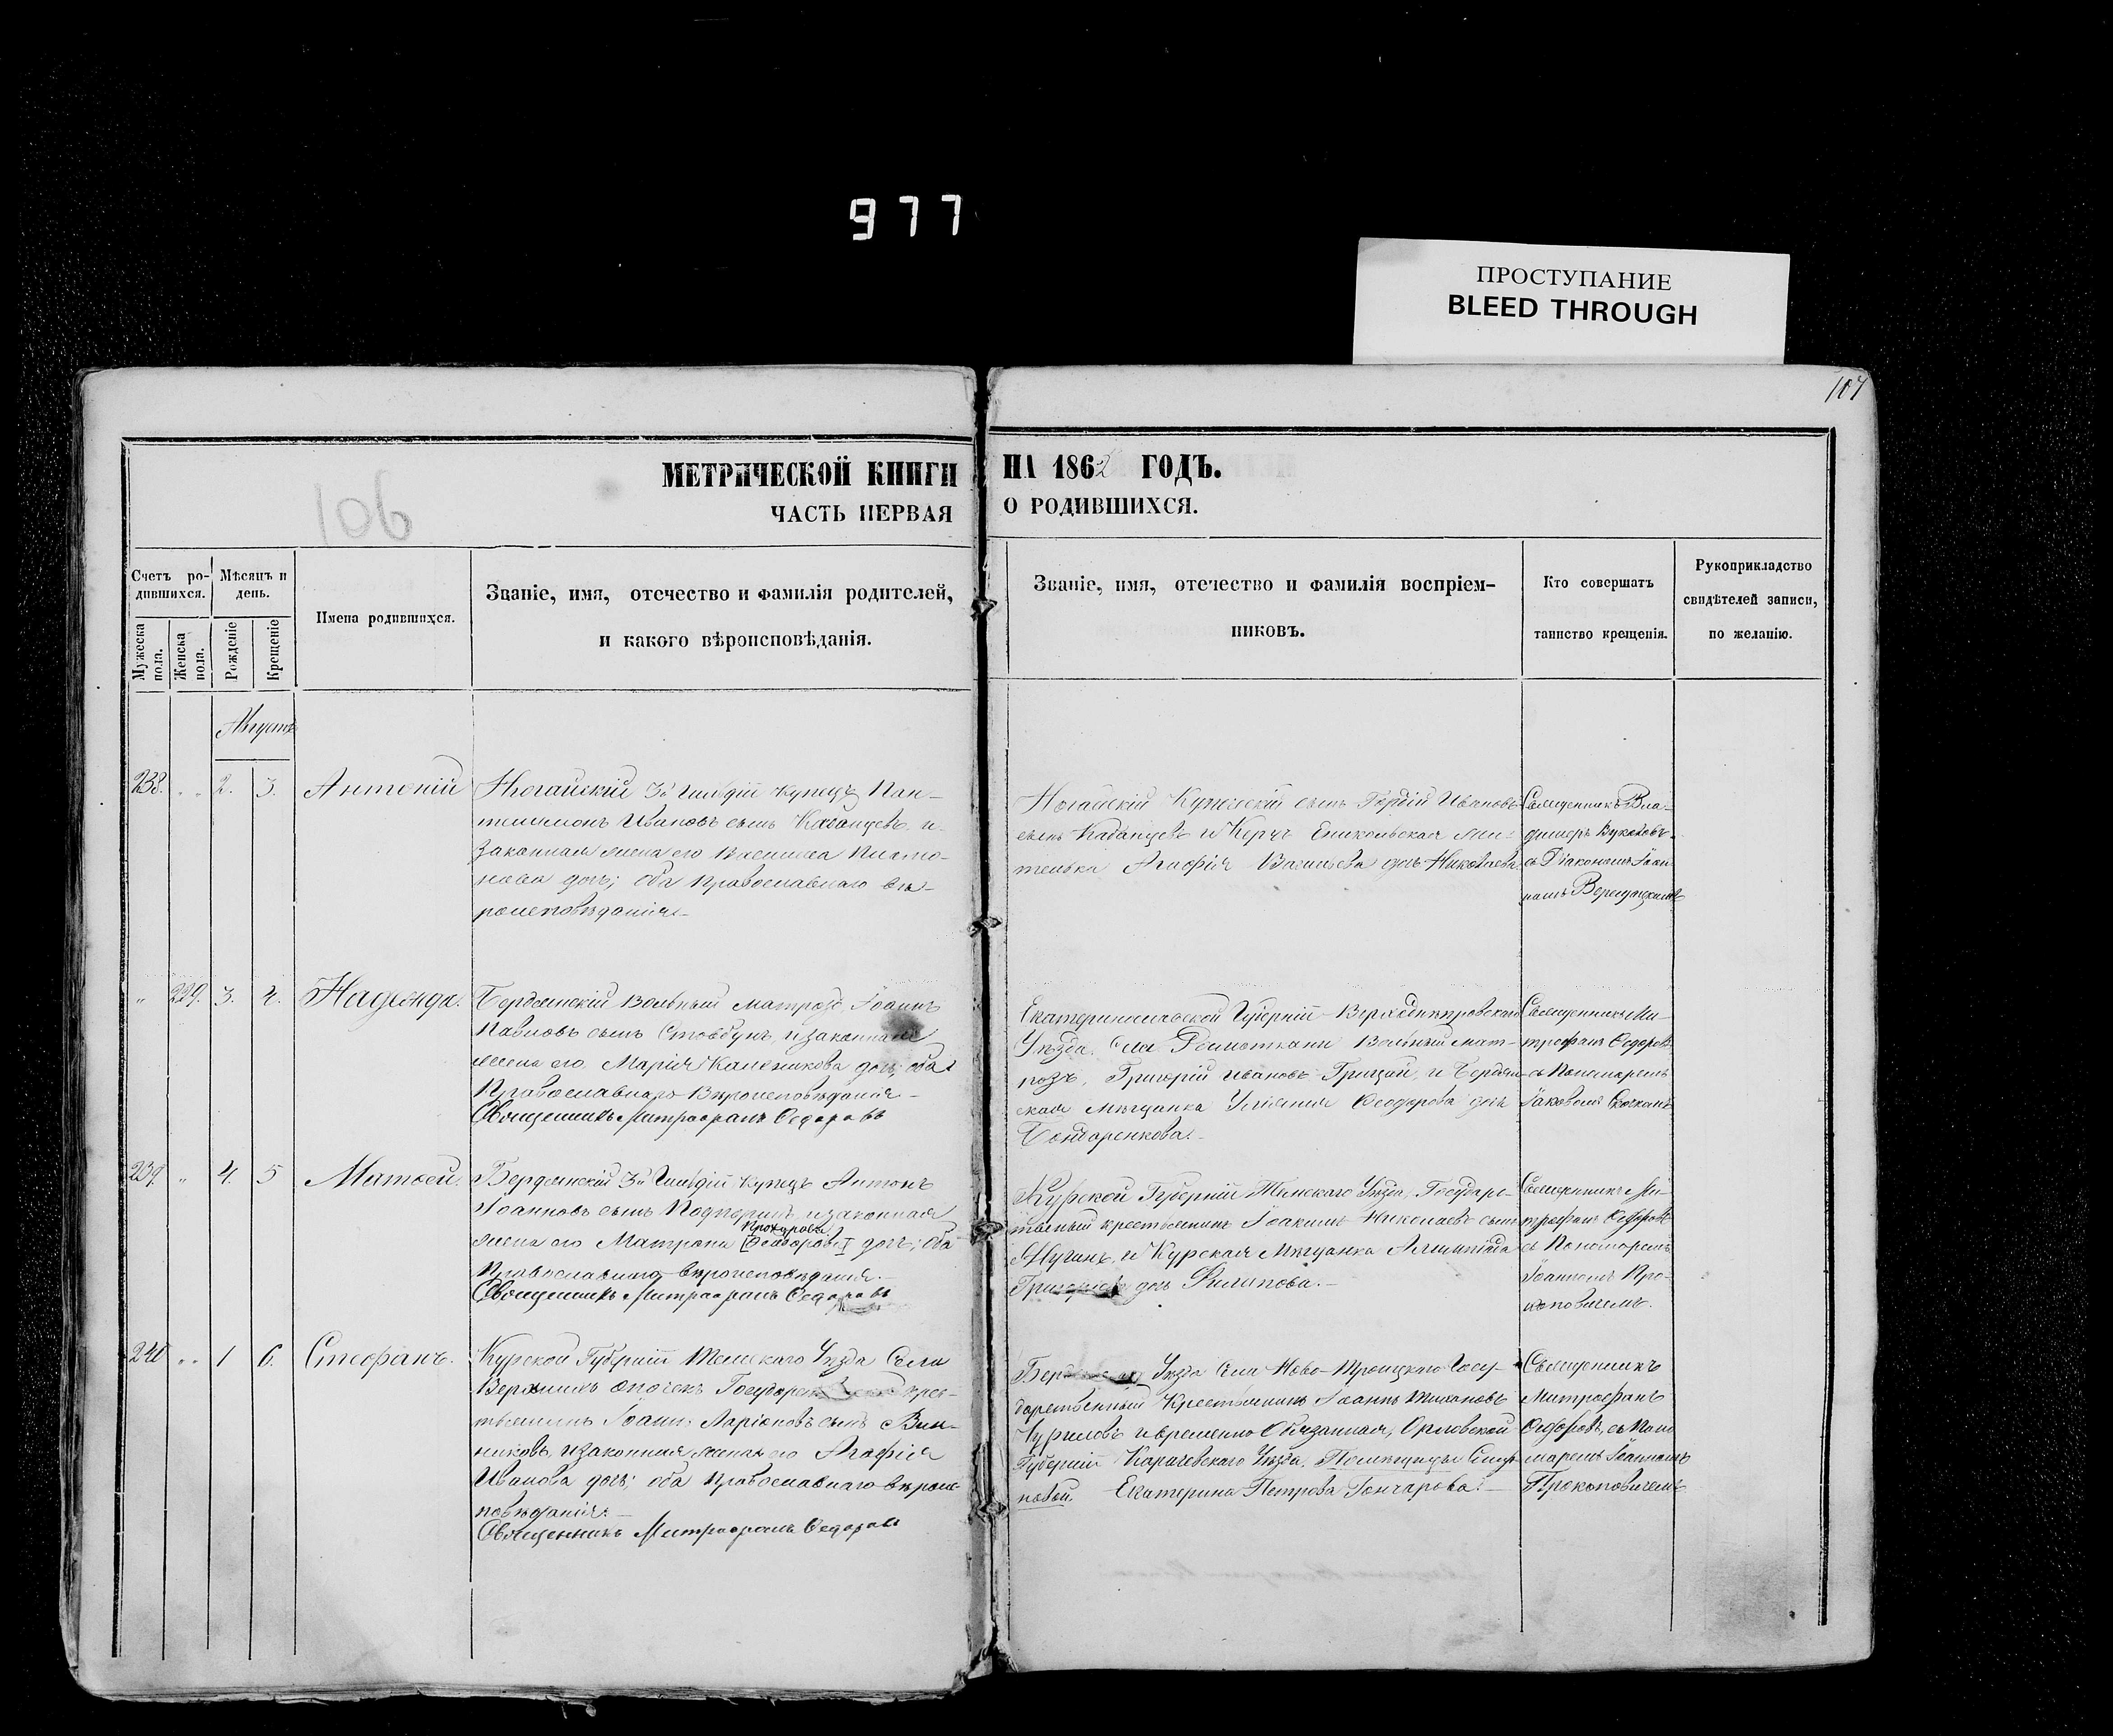 977
ПРОСТУПАНИЕ
BLEED THROUGH
107
106
МЕТРИЧЕСКОЙ КНИГИ
ЧАСТЬ ПЕРВАЯ
НА 1862 ГОДЪ.
О РОДИВШИХСЯ.
Счетъ ро-
дившихся.
Мужеска пола.
Женска пола.
Мѣсяцъ и
день.
Рожденіе
Крещеніе
Имена родившихся.
Званіе, имя, отечество и фамилія родителей,
и какого вѣроисповѣданія.
Званіе, имя, отечество и фамилія воспріем-
никовъ.
Кто совершатъ
таинство крещенія.
Рукоприкладство
свидѣтелей записи,
по желанію.
Августъ
238. 2. 3. Антоній
Ногайскій 3й Гильдіи Купецъ Пан-
телимонъ Ивановъ сынъ Кабанцевъ, и
Законная жена его Василиса
дочь; оба Православнаго вѣ-
роисповѣданія.
Ногайскій Купеческій сынъ Гордій Ивановъ
сынъ Кабанцевъ и Керчь Еникольская
Агафія Васильева дочь Николаева.
Священникъ Вла-
димиръ
съ Діакономъ Іоан-
номъ
229. 3. 4. Надежда.
Бердянскій Вольный матрозъ, Іоаннъ
Павловъ сынъ Стовбунъ, и законная
жена его Марія Каленикова дочь; оба
Православнаго Вѣроисповѣданія
Священникъ Митрофанъ Федоровъ
Екатеринославской Губерніи Верхнеднѣпровскаго
Уѣзда, Села Вольный мат-
розъ, Григорій Ивановъ Грицай, и Бердян-
ская мѣщанка Ульянія Феодорова дочь
Бондаренкова.
Священникъ Ми-
трофанъ Федоровъ
съ Пономаремъ
Іаковомъ
239. 4. 5 Матѳей.
Бердянскій 3й Гильдіи Купецъ Антонъ
Іоанновъ сынъ и законная
Прохорова
жена его Матрона дочь; оба
Православнаго вѣроисповѣданія.
Священникъ Митрофанъ Федоровъ
Курской Губерніи Тимскаго Уѣзда, Государс-
твеный крестьянинъ Іоакимъ Николаевъ сынъ
и Курская Мѣщанка
дочь Филипова.
Священникъ Ми-
трофанъ Федоровъ
съ Пономаремъ
Іоанномъ Про-
коповичемъ.
240 1 6. Стефанъ.
Курской Губерніи Тимскаго Уѣзда Села
крес-
тьянинъ Іоаннъ Ларіоновъ сынъ Вин-
никовъ, и законная жена его Агафія
Иванова дочь; оба Православнаго вѣроис-
повѣданія.
Священникъ Митрофанъ Федоровъ
Уѣзда Села Ново-Троицкаго Госу-
дарственный Крестьянинъ Іоаннъ Тихановъ
и временно Обязанная, Орловской
Губерніи Карачевскаго Уѣзда. Помѣщицы
Екатерина Петрова Гончарова.
Священникъ
Митрофанъ
Федоровъ, съ Поно-
маремъ Іоанномъ
Прокоповичемъ